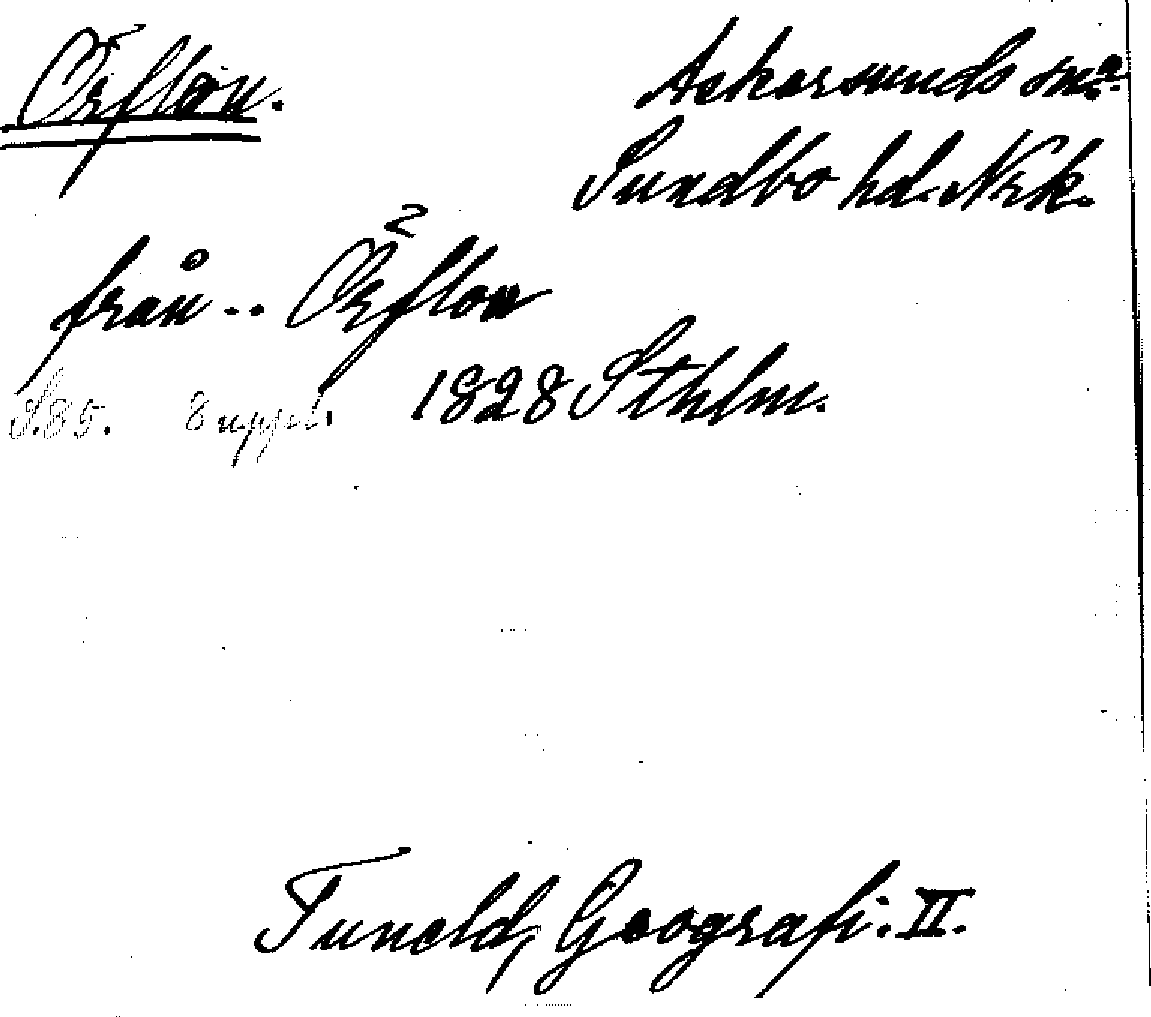 Örflon.
Askersunds sn?
Sundbo hd. Nrk.
från .. Örflon
S.85. 8 uppl. 1828 Sthlm.
Tuneld, Geografi. II.